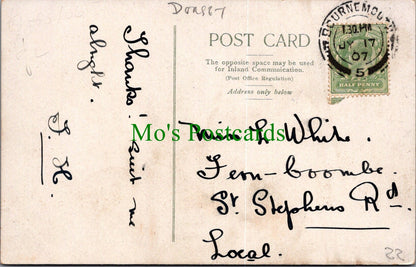 Dorset
POST CARD
The opposite space may be used
for Inland Communication.
(Post Office Regulation)
Address only below
BOURNEMOUTH
1.30 PM
JY 17
07
5
HALF PENNY
Thanks! suit me
alright.
J. H.
Mo's Postcards
Miss L. White.
Fern-Coombe.
St Stephens Rd.
Local.
22